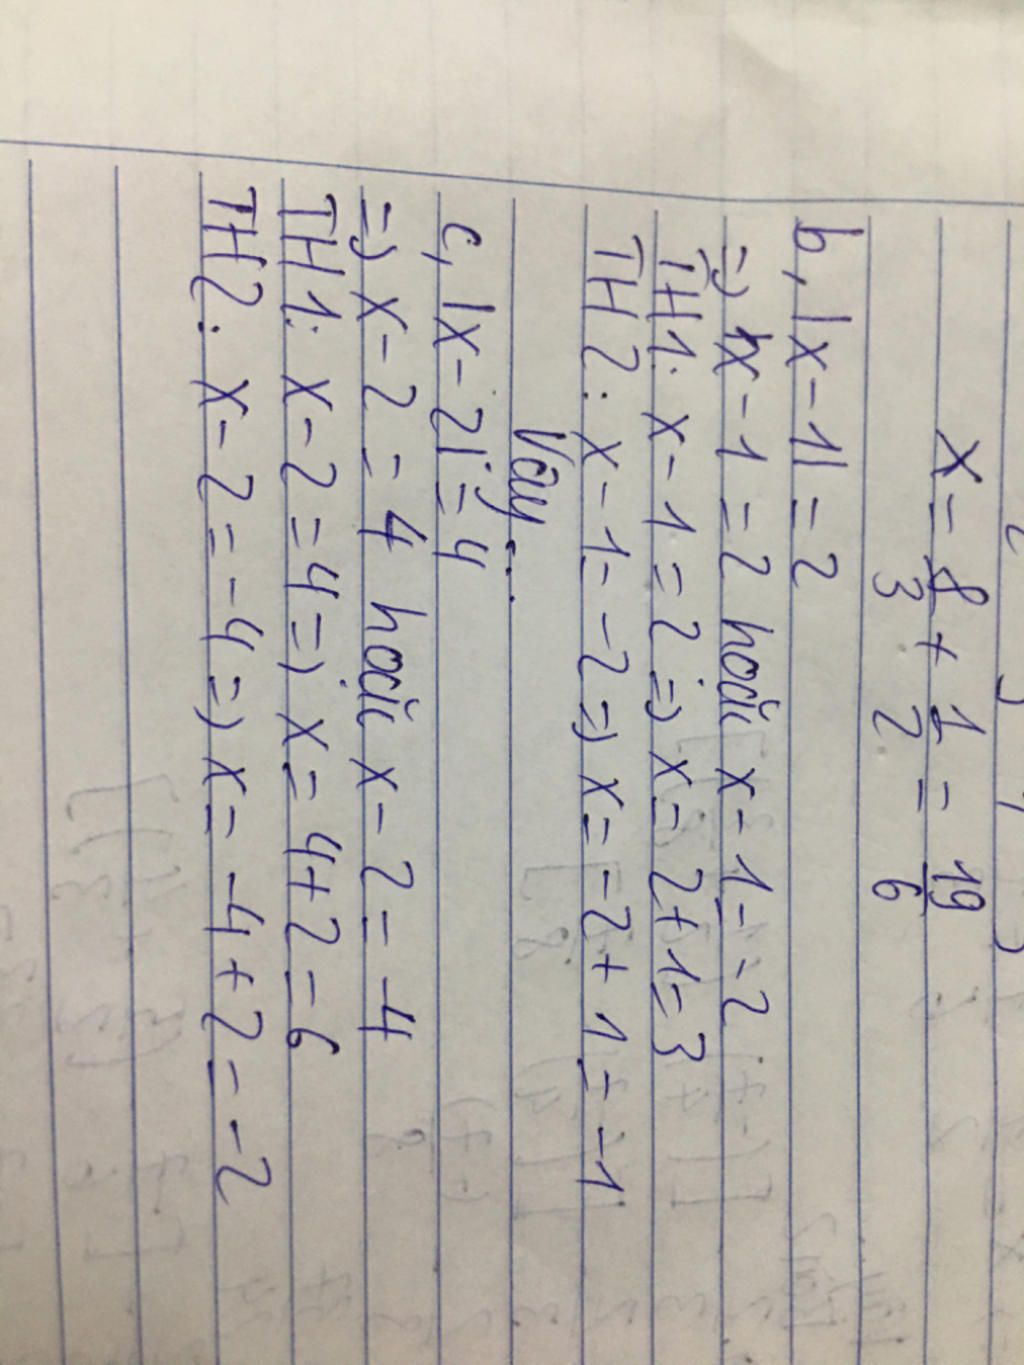 x = 8/3 + 1/2 = 19/6
b, |x - 1| = 2
=> x - 1 = 2 hoặc x - 1 = -2
TH1: x - 1 = 2 => x = 2 + 1 = 3
TH2: x - 1 = -2 => x = -2 + 1 = -1
Vậy...
c, |x - 2| = 4
=> x - 2 = 4 hoặc x - 2 = -4
TH1: x - 2 = 4 => x = 4 + 2 = 6
TH2: x - 2 = -4 => x = -4 + 2 = -2